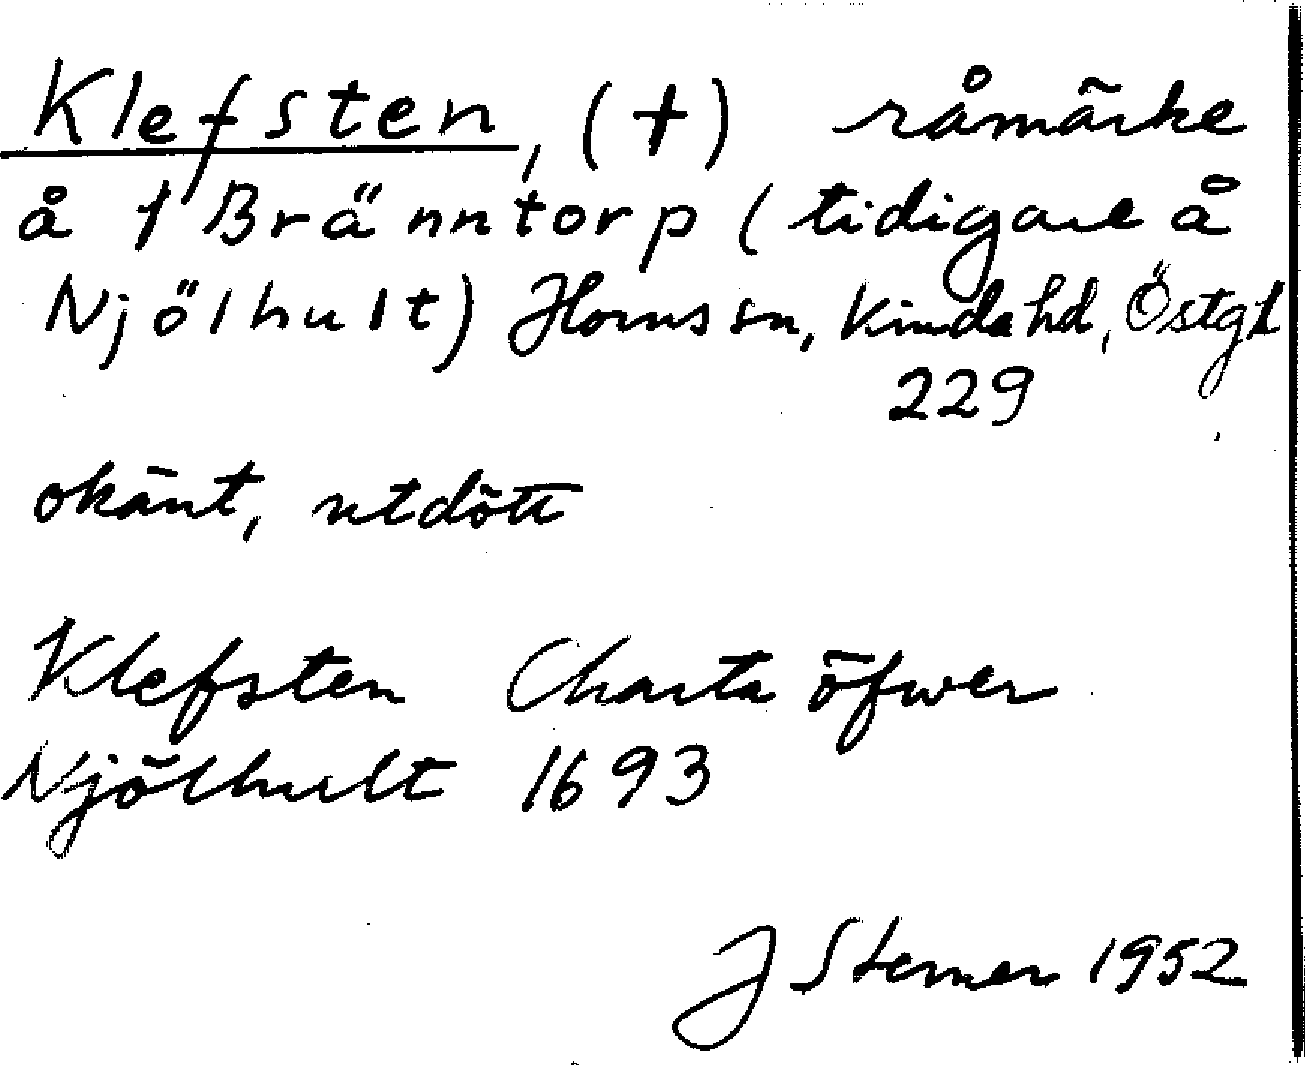 Klefsten, (†) råmärke
å 1 Bränntorp (tidigare å
Njölhult) Horns sn, Kinda hd, Östgl
229
okänt, utdött
Klefsten Charta öfwer
Njölhult 1693
J Sterner 1952